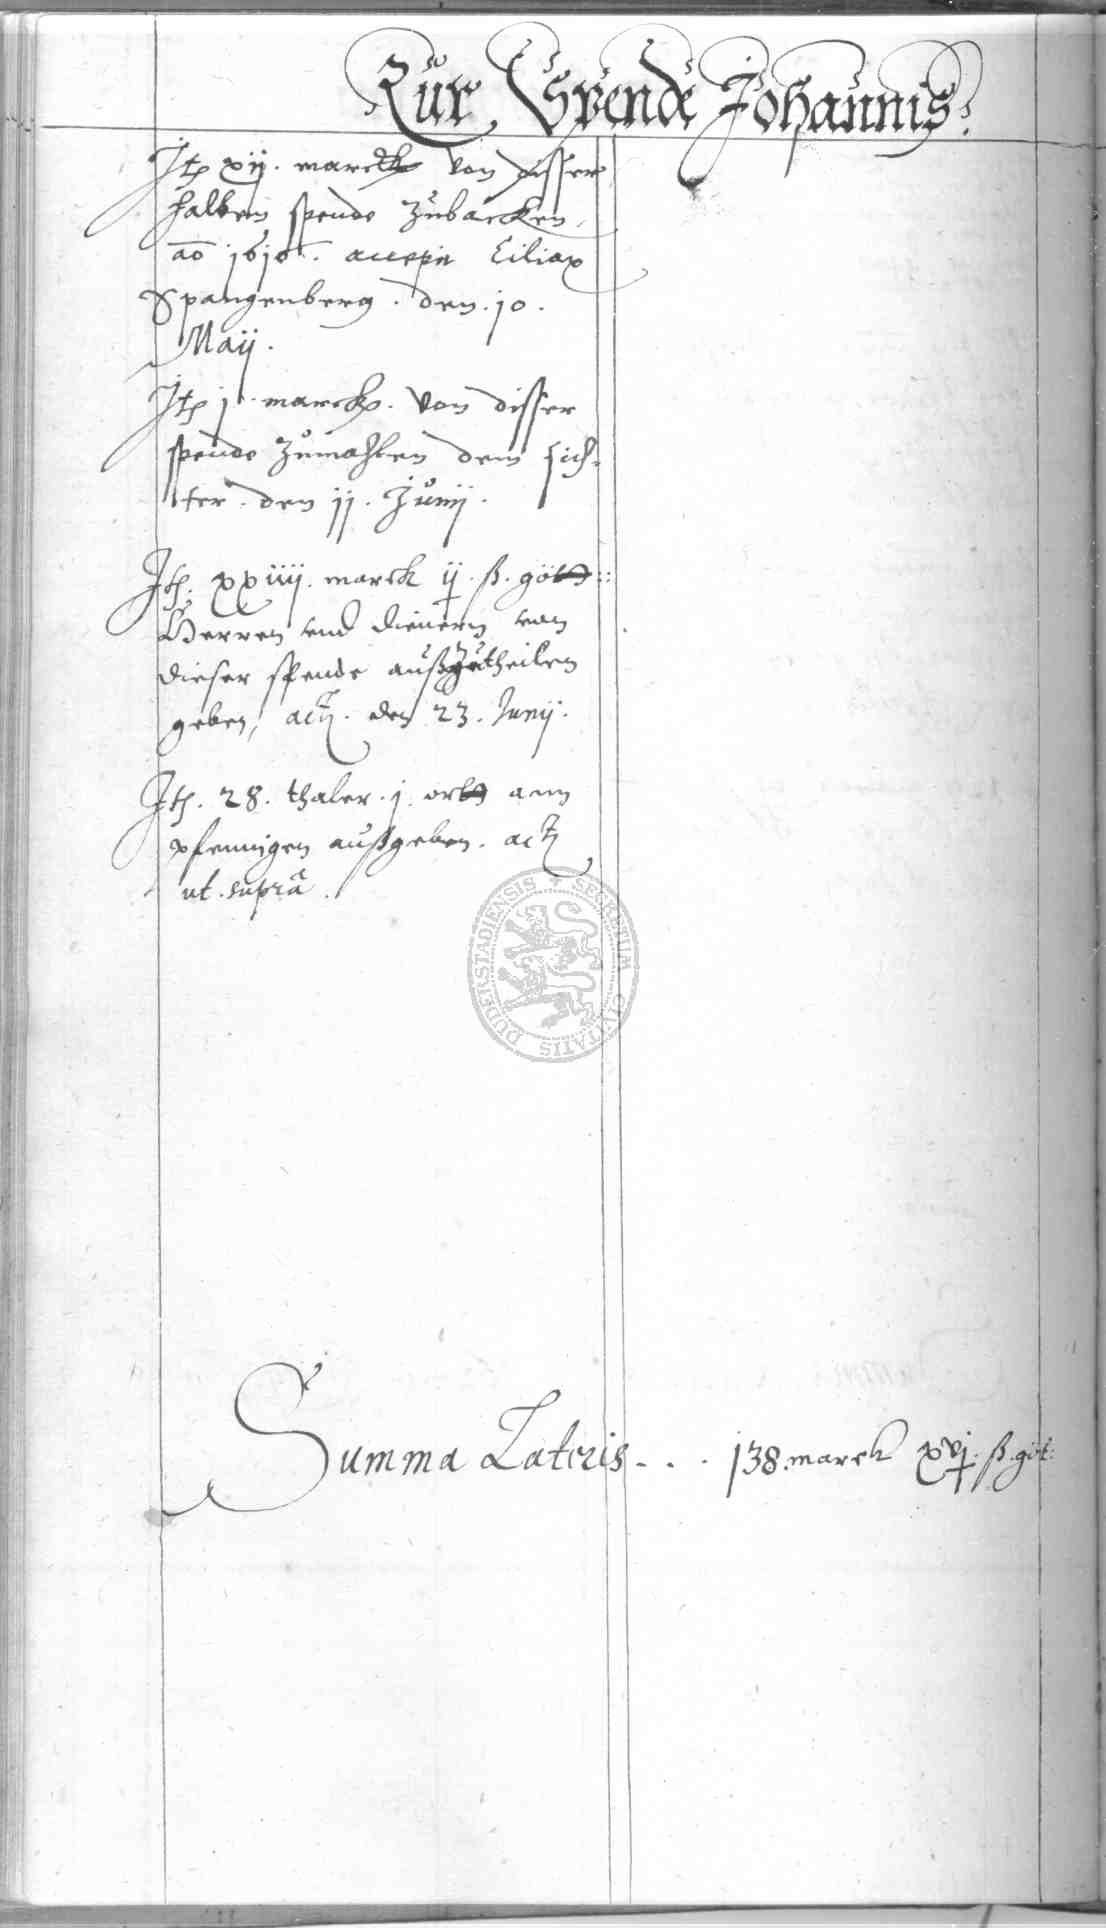 Zur Spende Johannis.
Itē xij. marck von disser
halben spende zubacken,
ao 1610. accepit Ciliax
Spangenberg. den. 10.
Maij.
Itē j. marck. von disser
spende zumahlen dem sich=
ter. den 11. Junij.
Itē. xxiiij. marck ij. ß. gött::
Herren und dienern von
dieser spende außzutheilen
geben, act. den 23. Junij.
Itē. 28. thaler. j. ortt ann
pfennigen außgeben. act
ut. suprà.
DUDERSTADIENSIS + SECRETUM CIVITATIS
Summa Lateris . . . 138. marck xvj. ß. göt: